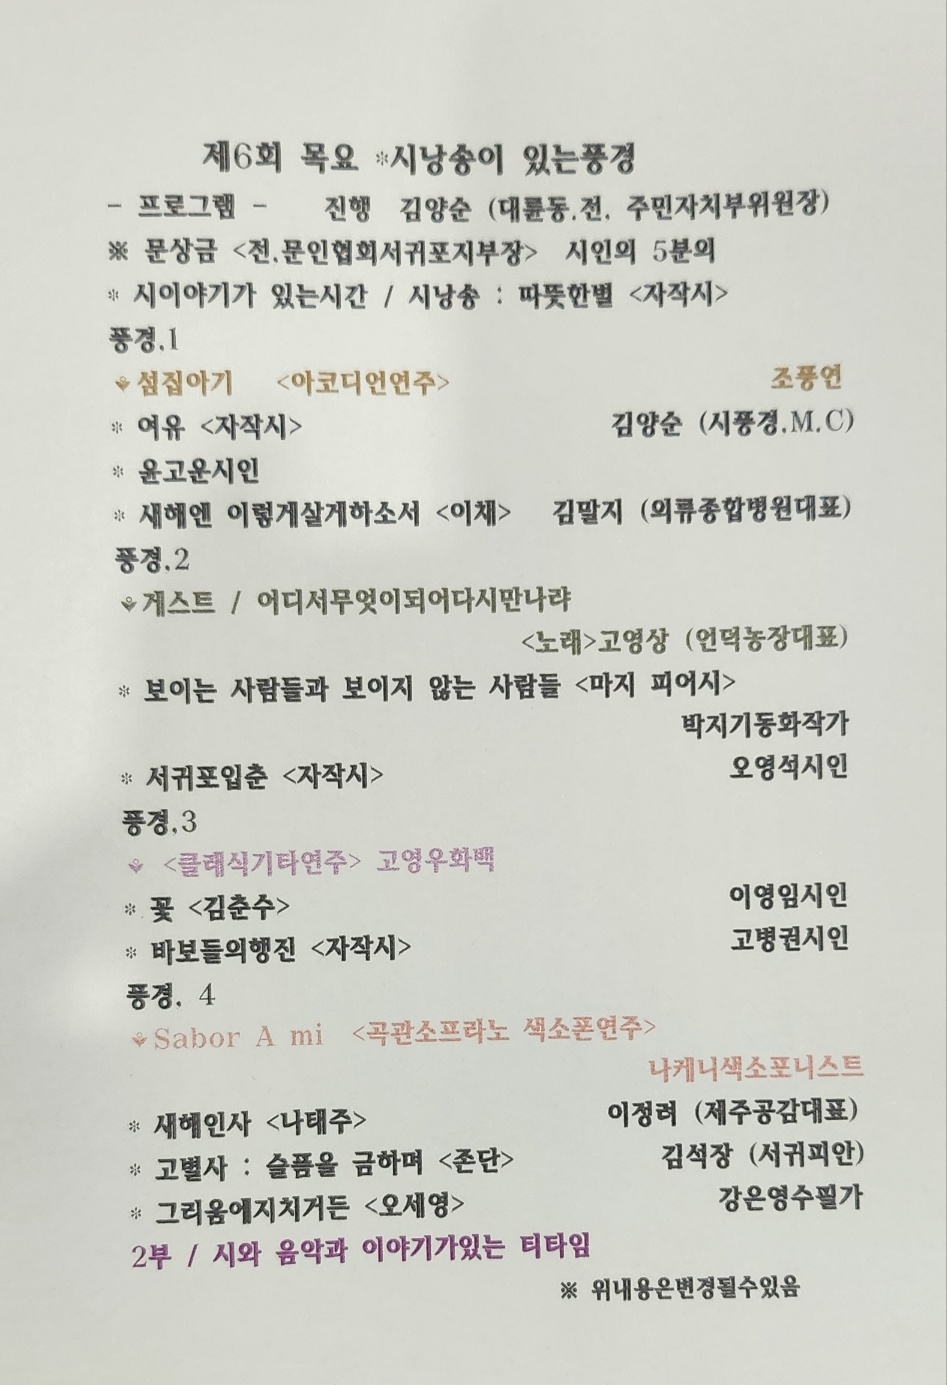 제6회 목요 *시낭송이 있는풍경
- 프로그램 - 진행 김양순 (대륜동.전. 주민자치부위원장)
※ 문상금 <전.문인협회서귀포지부장> 시인의 5분의
* 시이야기가 있는시간 / 시낭송 : 따뜻한별 <자작시>
풍경.1
⚘섬집아기 <아코디언연주> 조풍연
* 여유 <자작시> 김양순 (시풍경.M.C)
* 윤고운시인
* 새해엔 이렇게살게하소서 <이채> 김말지 (의류종합병원대표)
풍경.2
⚘게스트 / 어디서무엇이되어다시만나랴
<노래>고영상 (언덕농장대표)
* 보이는 사람들과 보이지 않는 사람들 <마지 피어시>
박지기동화작가
* 서귀포입춘 <자작시> 오영석시인
풍경.3
⚘ <클래식기타연주> 고영우화백
* 꽃 <김춘수> 이영임시인
* 바보들의행진 <자작시> 고병권시인
풍경. 4
⚘Sabor A mi <곡관소프라노 색소폰연주>
나케니색소포니스트
* 새해인사 <나태주> 이정려 (제주공감대표)
* 고별사 : 슬픔을 금하며 <존단> 김석장 (서귀피안)
* 그리움에지치거든 <오세영> 강은영수필가
2부 / 시와 음악과 이야기가있는 티타임
※ 위내용은변경될수있음